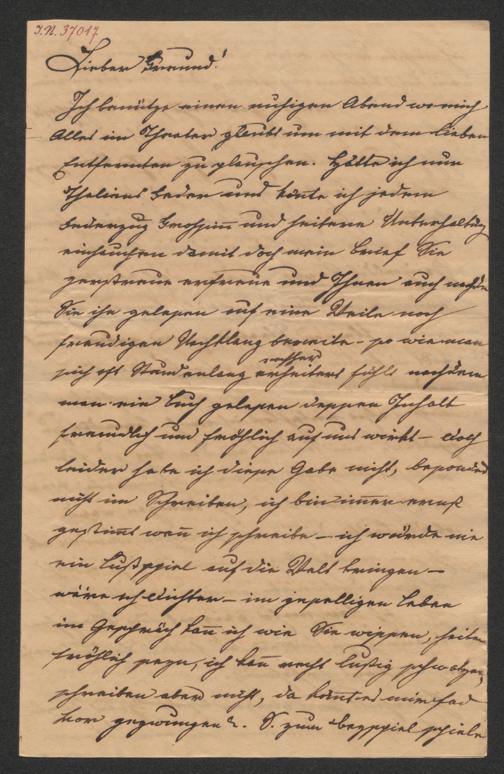 I.N. 37017
Lieber Freund!
Ich benütze einen ruhigen Abend wo mich
Alles im Theater glaubt um mit dem lieben
Entfernten zu plauschen. Hätte ich nur
Thaliens Feder und könte ich jedem
Federzug Frohsinn und heitere Unterhaltung
einhauchen damit doch mein Brief Sie
zerstreue erfreue und Ihnen auch nachdem
Sie ihn gelesen auf eine Weile noch
freudigen Nachklang bereite – so wie man
sich oft Stundenlang erheitert fühlt nachdem
man ein Buch gelesen dessen Inhalt
freundlich und fröhlich auf uns wirkt – doch
leider habe ich diese Gabe nicht, besonders
nicht im Schreiben, ich bin immer ernst
gestimt wen ich schreibe – ich würde nie
ein Lustspiel auf die Welt bringen –
wäre ich Dichter – im geselligen Leben
im Gespräch kan ich wie Sie wissen, heiter
fröhlich seyn, ich kan recht lustig schwatzen,
schreiben aber nicht, da kämt es mir fad
vor gezwungen &. S. zum Beyspiel spiele